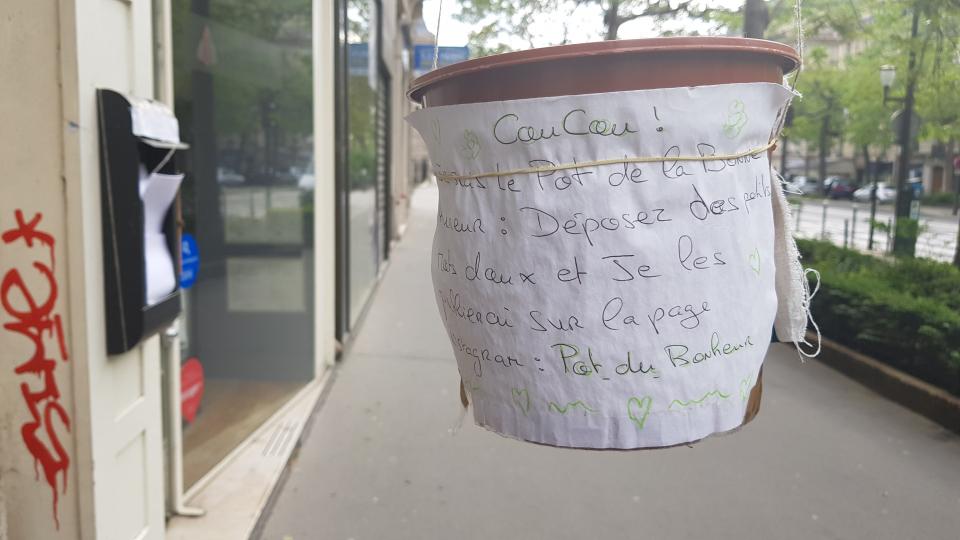 CouCou !
suis le Pot de la Bonne
umeur : Déposez des petits
mots doux et Je les
publierai sur la page
Instagram : Pot du Bonheur